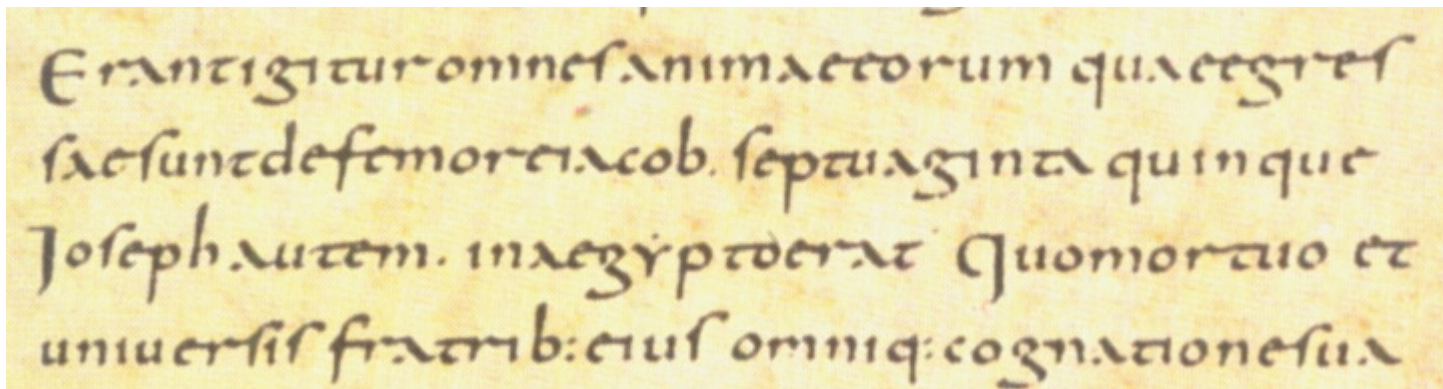 Erant igitur omnes animae eorum quae egres
sae sunt de femore iacob. septuaginta quinque
Ioseph autem. in aegypto erat Quo mortuo et
universis fratrib: eius omniq: cognatione sua